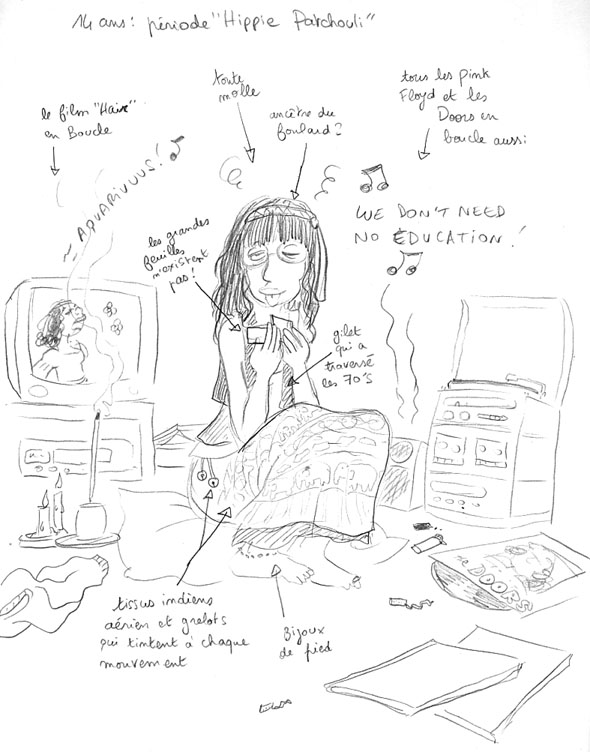 14 ans : période "Hippie Patchouli"
le film "Hair"
en Boucle
toute
molle
ancêtre du
foulard ?
tous les Pink
Floyd et les
Doors en
boucle aussi
~ AQUARIUUUS !
WE DON'T NEED
NO EDUCATION !
les grandes
feuilles
n'existent
pas !
gilet
qui a
traversé
les 70'S
the DOORS
tissus indiens
aérien et grelots
qui tintent à chaque
mouvement
Bijoux
de pied